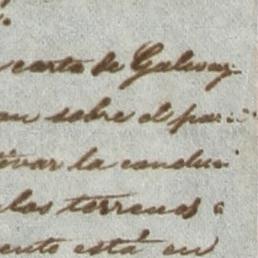 carta de Galway
an sobre el par
ivar la conduc
los terrenos a
ento está en